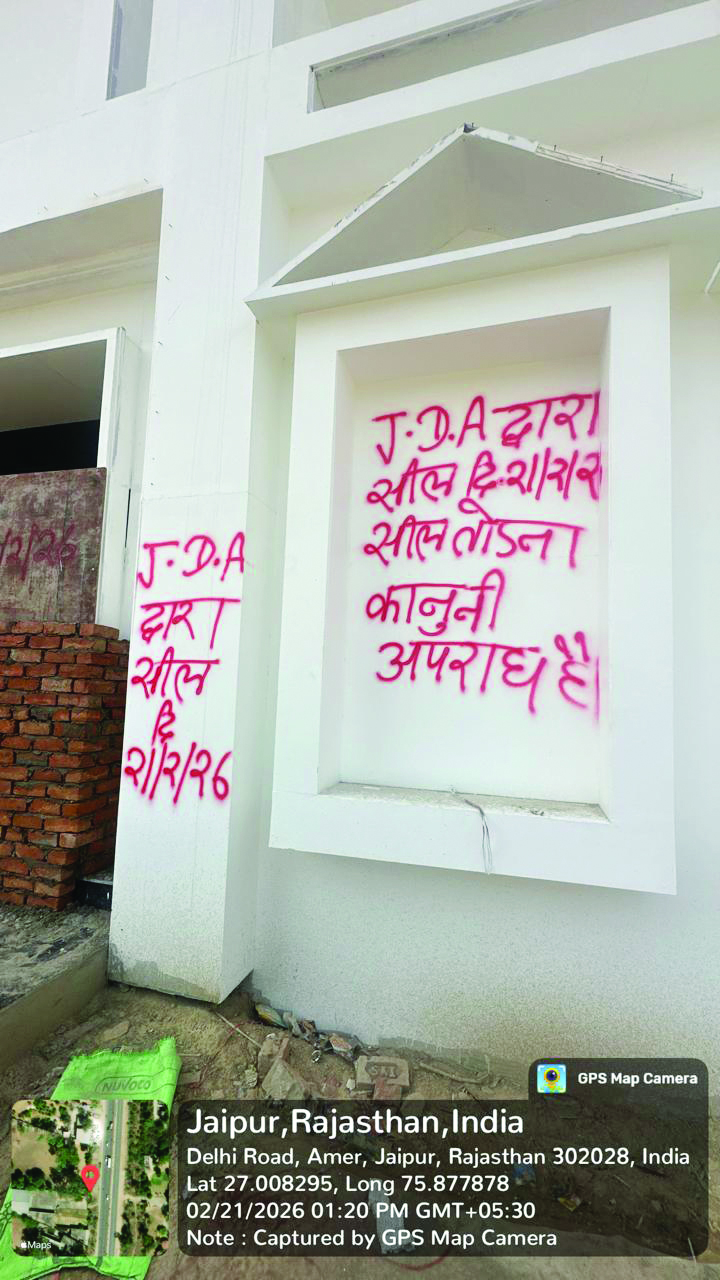 J.D.A द्वारा
सील दि. २१/२/२
सील तोडना
कानुनी
अपराध है
J.D.A
द्वारा
सील
दि
२१/२/२६
/२/२६
NUVOCO
GPS Map Camera
Jaipur,Rajasthan,India
Delhi Road, Amer, Jaipur, Rajasthan 302028, India
Lat 27.008295, Long 75.877878
02/21/2026 01:20 PM GMT+05:30
Note : Captured by GPS Map Camera
Maps